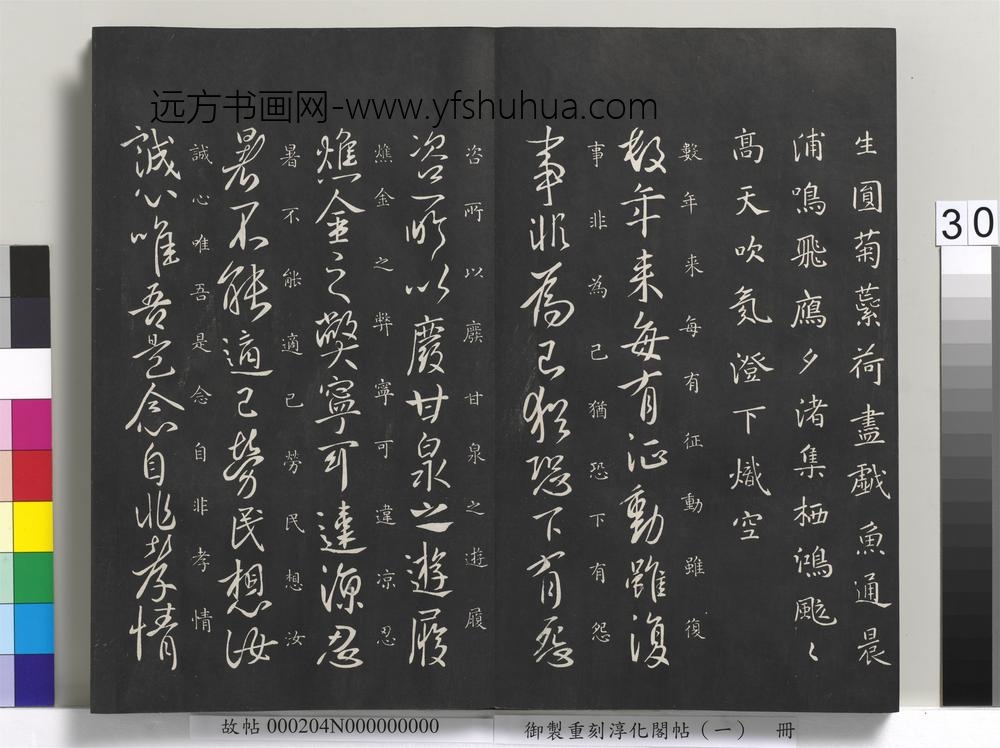 远方书画网-www.yfshuhua.com
30
生圓菊蘂荷盡戲魚通晨
浦鳴飛鴈夕渚集栖鴻飈〻
高天吹氛澄下熾空
數年来每有征動雖復
數年来每有征動雖復
事非為己猶恐下有怨
事非為己猶恐下有怨
咨所以廢甘泉之遊履
咨所以廢甘泉之遊履
燋金之弊寧可違凉忍
燋金之弊寧可違凉忍
暑不能適己勞民想汝
暑不能適己勞民想汝
誠心唯吾是念自非孝情
誠心唯吾是念自非孝情
故帖 000204N000000000
御製重刻淳化閣帖（一） 冊